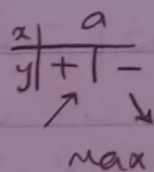 x | a
y | + | −
↗ ↘
max